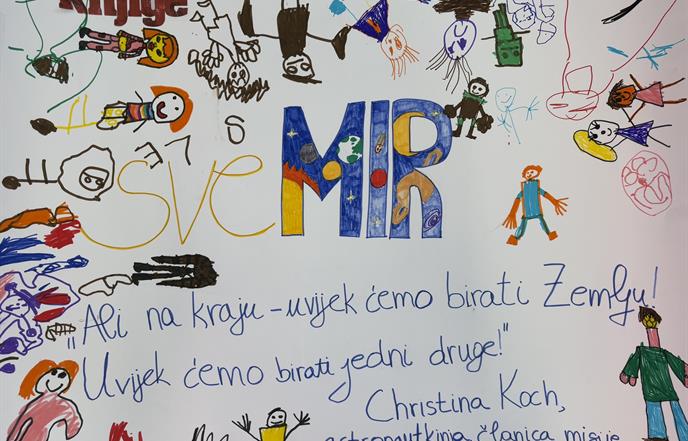 Knjige
sveMIR
„Ali na kraju – uvijek ćemo birati Zemlju!
Uvijek ćemo birati jedni druge!"
Christina Koch,
astronautkinja članica misije